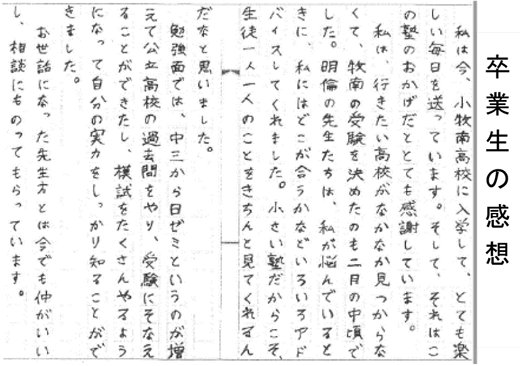 卒業生の感想
私は今、小牧南高校に入学して、とても楽
しい毎日を送っています。そして、それはこ
の塾のおかげだととても感謝しています。
私は、行きたい高校がなかなか見つからな
くて、牧南の受験を決めたのも二月の中頃で
した。明倫の先生たちは、私が悩んでいると
きに、私にはどこが合うかなどいろいろアド
バイスしてくれました。小さい塾だからこそ、
生徒一人一人のことをきちんと見てくれるん
だなと思いました。
勉強面では、中三から日ゼミというのが増
えて公立高校の過去問をやり、受験にそなえ
ることができたし、模試をたくさんやるよう
になって自分の実力をしっかり知ることがで
きました。
お世話になった先生方とは今でも仲がいい
し、相談にものってもらっています。